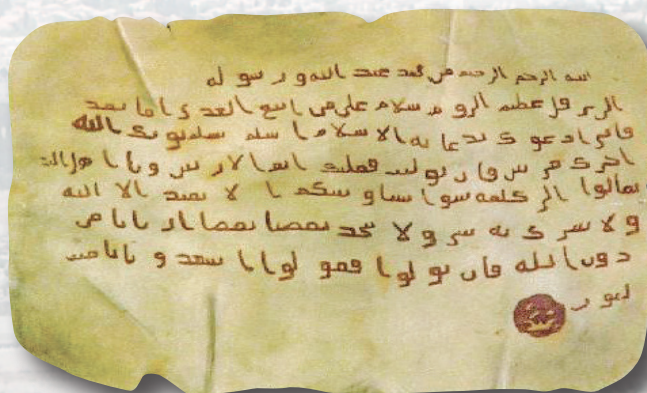 بسم الرحمن الرحيم من محمد عبد الله ورسوله
الى هرقل عظيم الروم سلام على من اتبع الهدى اما بعد
فانى ادعوك بدعاية الاسلام اسلم تسلم يوتك الله
اجرك مرتين فان توليت فعليك اثم الاريسين ويا اهل
تعالوا الى كلمة سوا بيننا وبينكم الا نعبد الا الله
ولا نشرك به شيا ولا يتخذ بعضنا بعضا اربابا من
دون الله فان تولوا فقولوا اشهدوا بانا مسلـ
ـمون